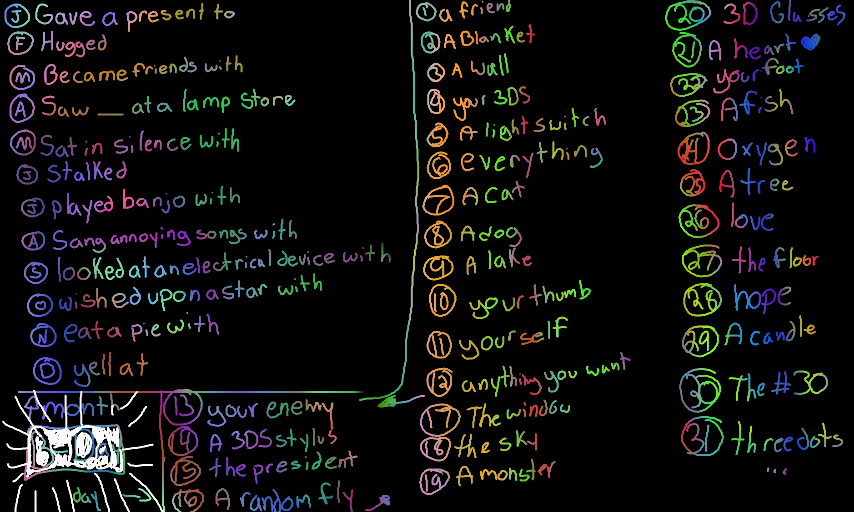 J Gave a present to
F Hugged
M Became friends with
A Saw __ at a lamp store
M Sat in silence with
J Stalked
J played banjo with
A Sang annoying songs with
S looked at an electrical device with
O wished upon a star with
N eat a pie with
D yell at
month
B-DA
day
1 a friend
2 A Blanket
3 A Wall
4 your 3DS
5 A light switch
6 everything
7 A Cat
8 A dog
9 A lake
10 your thumb
11 yourself
12 anything you want
13 your enemy
14 A 3DS stylus
15 the president
16 A random fly
17 The window
18 the sky
19 A monster
20 3D Glasses
21 A heart
22 your foot
23 A fish
24 Oxygen
25 A tree
26 love
27 the floor
28 hope
29 A candle
30 The #30
31 three dots
...